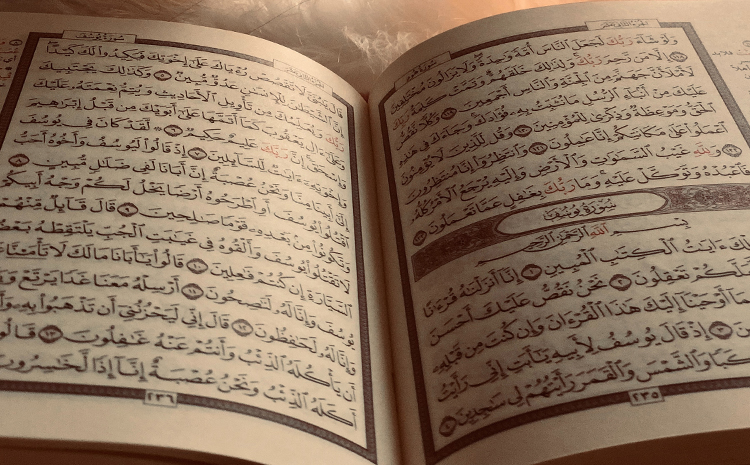 الجزء الثاني عشر
سورة هود
وَلَوْ شَآءَ رَبُّكَ لَجَعَلَ ٱلنَّاسَ أُمَّةً وَٰحِدَةً وَلَا يَزَالُونَ مُخْتَلِفِينَ
١١٨ إِلَّا مَن رَّحِمَ رَبُّكَ وَلِذَٰلِكَ خَلَقَهُمْ وَتَمَّتْ كَلِمَةُ رَبِّكَ
لَأَمْلَأَنَّ جَهَنَّمَ مِنَ ٱلْجِنَّةِ وَٱلنَّاسِ أَجْمَعِينَ ١١٩ وَكُلًّا نَّقُصُّ
عَلَيْكَ مِنْ أَنۢبَآءِ ٱلرُّسُلِ مَا نُثَبِّتُ بِهِۦ فُؤَادَكَ وَجَآءَكَ فِى هَٰذِهِ
ٱلْحَقُّ وَمَوْعِظَةٌ وَذِكْرَىٰ لِلْمُؤْمِنِينَ ١٢٠ وَقُل لِّلَّذِينَ لَا يُؤْمِنُونَ
ٱعْمَلُوا۟ عَلَىٰ مَكَانَتِكُمْ إِنَّا عَٰمِلُونَ ١٢١ وَٱنتَظِرُوٓا۟ إِنَّا مُنتَظِرُونَ
١٢٢ وَلِلَّهِ غَيْبُ ٱلسَّمَٰوَٰتِ وَٱلْأَرْضِ وَإِلَيْهِ يُرْجَعُ ٱلْأَمْرُ كُلُّهُۥ
فَٱعْبُدْهُ وَتَوَكَّلْ عَلَيْهِ وَمَا رَبُّكَ بِغَٰفِلٍ عَمَّا تَعْمَلُونَ ١٢٣
سُورَةُ يُوسُفَ
بِسْمِ ٱللَّهِ ٱلرَّحْمَٰنِ ٱلرَّحِيمِ
ءَايَٰتُ ٱلْكِتَٰبِ ٱلْمُبِينِ ١ إِنَّآ أَنزَلْنَٰهُ قُرْءَٰنًا
تَعْقِلُونَ ٢ نَحْنُ نَقُصُّ عَلَيْكَ أَحْسَنَ
أَوْحَيْنَآ إِلَيْكَ هَٰذَا ٱلْقُرْءَانَ وَإِن كُنتَ مِن قَبْلِهِۦ
٣ إِذْ قَالَ يُوسُفُ لِأَبِيهِ يَٰٓأَبَتِ إِنِّى رَأَيْتُ
وَٱلشَّمْسَ وَٱلْقَمَرَ رَأَيْتُهُمْ لِى سَٰجِدِينَ ٤
٢٣٥
الجزء الثاني عشر
سورة يوسف
قَالَ يَٰبُنَىَّ لَا تَقْصُصْ رُءْيَاكَ عَلَىٰٓ إِخْوَتِكَ فَيَكِيدُوا۟ لَكَ كَيْدًا
إِنَّ ٱلشَّيْطَٰنَ لِلْإِنسَٰنِ عَدُوٌّ مُّبِينٌ ٥ وَكَذَٰلِكَ يَجْتَبِيكَ
رَبُّكَ وَيُعَلِّمُكَ مِن تَأْوِيلِ ٱلْأَحَادِيثِ وَيُتِمُّ نِعْمَتَهُۥ عَلَيْكَ
وَعَلَىٰٓ ءَالِ يَعْقُوبَ كَمَآ أَتَمَّهَا عَلَىٰٓ أَبَوَيْكَ مِن قَبْلُ إِبْرَٰهِيمَ
وَإِسْحَٰقَ إِنَّ رَبَّكَ عَلِيمٌ حَكِيمٌ ٦ لَّقَدْ كَانَ فِى يُوسُفَ
وَإِخْوَتِهِۦٓ ءَايَٰتٌ لِّلسَّآئِلِينَ ٧ إِذْ قَالُوا۟ لَيُوسُفُ وَأَخُوهُ أَحَبُّ
إِلَىٰٓ أَبِينَا مِنَّا وَنَحْنُ عُصْبَةٌ إِنَّ أَبَانَا لَفِى ضَلَٰلٍ مُّبِينٍ ٨
ٱقْتُلُوا۟ يُوسُفَ أَوِ ٱطْرَحُوهُ أَرْضًا يَخْلُ لَكُمْ وَجْهُ أَبِيكُمْ
وَتَكُونُوا۟ مِنۢ بَعْدِهِۦ قَوْمًا صَٰلِحِينَ ٩ قَالَ قَآئِلٌ مِّنْهُمْ
لَا تَقْتُلُوا۟ يُوسُفَ وَأَلْقُوهُ فِى غَيَٰبَتِ ٱلْجُبِّ يَلْتَقِطْهُ بَعْضُ
ٱلسَّيَّارَةِ إِن كُنتُمْ فَٰعِلِينَ ١٠ قَالُوا۟ يَٰٓأَبَانَا مَا لَكَ لَا تَأْمَ۫نَّا
يُوسُفَ وَإِنَّا لَهُۥ لَنَٰصِحُونَ ١١ أَرْسِلْهُ مَعَنَا غَدًا يَرْتَعْ
وَإِنَّا لَهُۥ لَحَٰفِظُونَ ١٢ قَالَ إِنِّى لَيَحْزُنُنِىٓ أَن تَذْهَبُوا۟ بِهِۦ
أَن يَأْكُلَهُ ٱلذِّئْبُ وَأَنتُمْ عَنْهُ غَٰفِلُونَ ١٣ قَالُوا۟
أَكَلَهُ ٱلذِّئْبُ وَنَحْنُ عُصْبَةٌ إِنَّآ إِذًا لَّخَٰسِرُونَ
٢٣٦